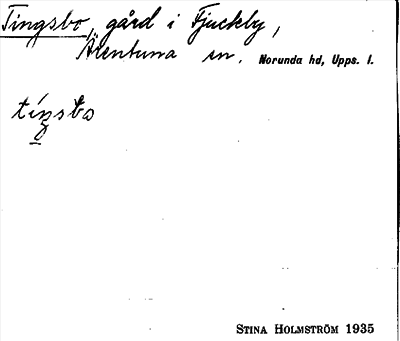 Tingsbo, gård i Fjuckby,
Ärentuna sn. Norunda hd, Upps. l.
tíŋsbo
STINA HOLMSTRÖM 1935